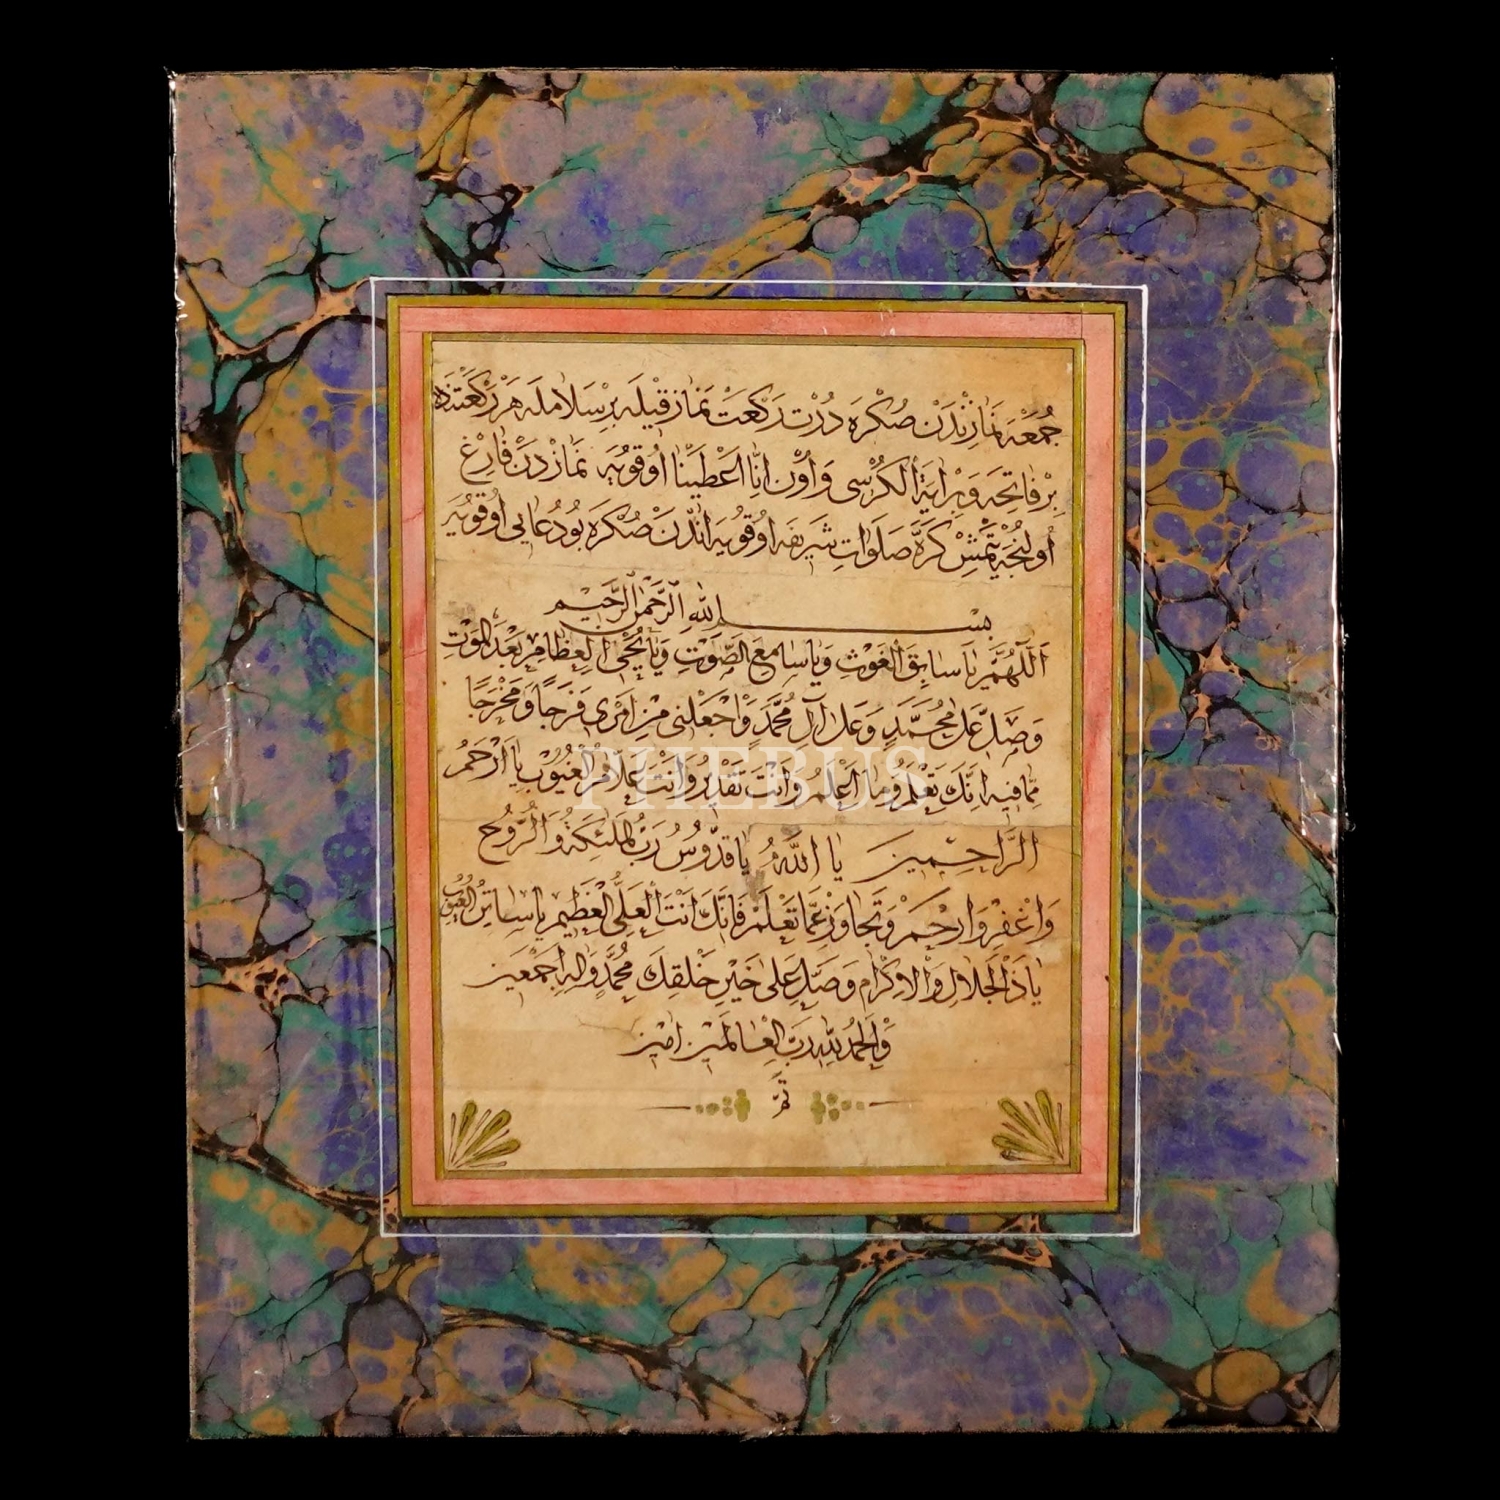 جُمْعَه نَمَازِنْدَنْ صُكْرَه دُرْت رَكْعَتْ نَمَاز قِيلَه بِرْ سَلَامْلَه هَرْ رَكْعَتِنْدَه
بِرْ فَاتِحَه وَ بِرْ اٰيَةُ الْكُرْسِى وَ اُونْ اِنَّا اَعْطَيْنَا اُوقُويَه نَمَازْدَنْ فَارِغْ
اُولِنْجَه يَتْمِشْ كَرَّه صَلَوَاتِ شَرِيفَه اُوقُويَه اَنْدَنْ صُكْرَه بُو دُعَايِى اُوقُويَه
بِسْمِ اللهِ الرَّحْمٰنِ الرَّحِيمِ
اَللّٰهُمَّ يَا سَابِقَ الْغَوْثِ وَيَا سَامِعَ الصَّوْتِ وَيَا يُحْيِى الْعِظَامِ بَعْدَ الْمَوْتِ
وَصَلِّ عَلٰى مُحَمَّدٍ وَعَلٰى اٰلِ مُحَمَّدٍ وَاجْعَلْنِى مِنْ اَمْرِى فَرَجًا وَمَخْرَجًا
مِمَّا فِيهِ اِنَّكَ تَعْلَمُ وَمَا اَعْلَمُ وَاَنْتَ تَقْدِرُ وَاَنْتَ عَلَّامُ الْغُيُوبِ يَا اَرْحَمَ
الرَّاحِمِينَ يَا اَللهُ يَا قُدُّوسُ رَبُّ الْمَلٰئِكَةِ وَالرُّوحِ
وَاغْفِرْ وَارْحَمْ وَتَجَاوَزْ عَمَّا تَعْلَمْ فَاِنَّكَ اَنْتَ الْعَلِىُّ الْعَظِيمُ يَا سَاتِرَ الْعُيُوبِ
يَا ذَا الْجَلَالِ وَالْاِكْرَامِ وَصَلِّ عَلٰى خَيْرِ خَلْقِكَ مُحَمَّدٍ وَاٰلِهِ اَجْمَعِينَ
وَالْحَمْدُ لِلّٰهِ رَبِّ الْعَالَمِينَ اٰمِينَ
تَمَّ
PHEBUS